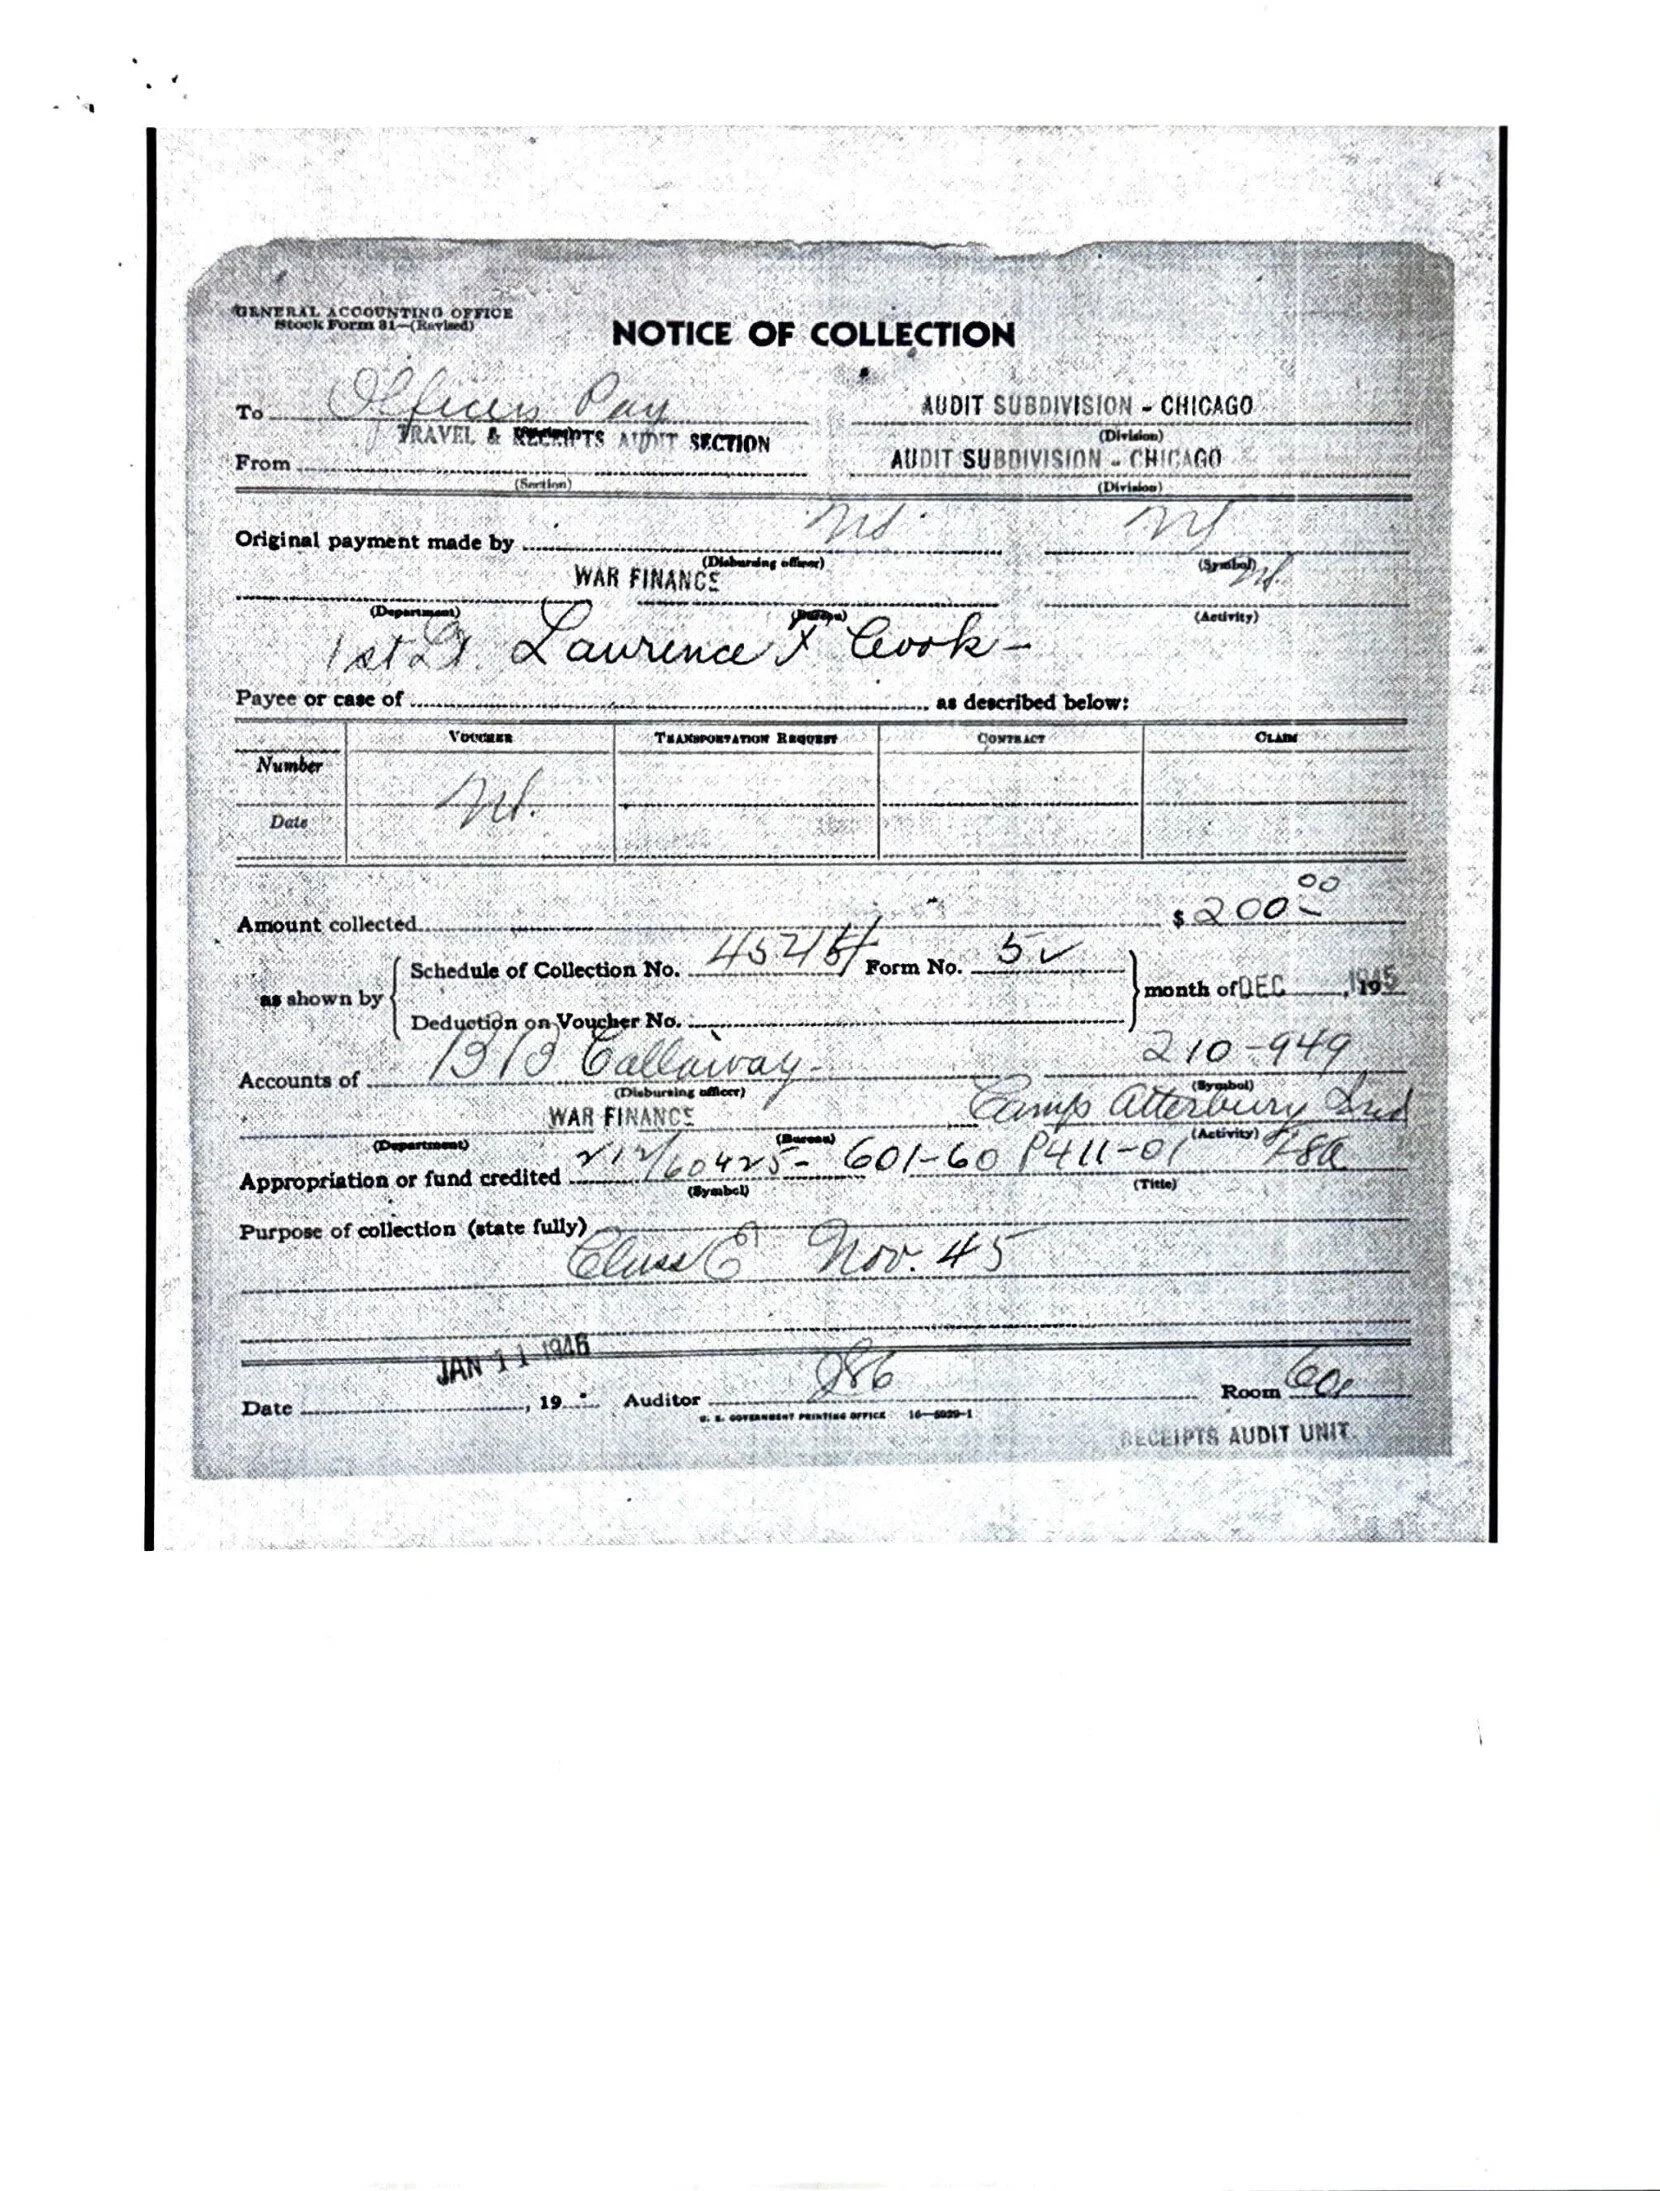 GENERAL ACCOUNTING OFFICE
Stock Form 31—(Revised)
NOTICE OF COLLECTION
To Officers Pay AUDIT SUBDIVISION - CHICAGO
(Division)
TRAVEL & RECEIPTS AUDIT SECTION
From AUDIT SUBDIVISION - CHICAGO
(Section) (Division)
Original payment made by
(Disbursing officer) (Symbol)
WAR FINANCE
(Department) (Bureau) (Activity)
1st Lt. Laurence F Cook -
Payee or case of as described below:
VOUCHER TRANSPORTATION REQUEST CONTRACT CLAIM
Number
Date
Amount collected $ 200.00
Schedule of Collection No. Form No. 5
as shown by month of DEC, 1945
Deduction on Voucher No.
Accounts of B B Callaway - 210-949
(Disbursing officer) (Symbol)
WAR FINANCE Camp Atterbury Ind
(Department) (Bureau) (Activity)
Appropriation or fund credited 212/60425- 601-60 P411-01
(Symbol) (Title)
Purpose of collection (state fully)
Class E Nov. 45
JAN 11 1946
Date , 19 Auditor 286 Room 601
U. S. GOVERNMENT PRINTING OFFICE 16—5029-1
RECEIPTS AUDIT UNIT.